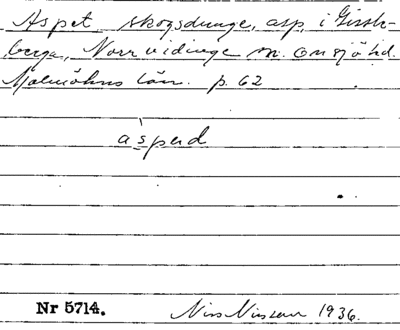 Aspet, skogsdunge, asp, i Girsk-
berga, Norrvidinge sn. Onsjö hd.
Malmöhus län. p. 62
àspəd
Nr 5714. Nils Nilsson 1936.